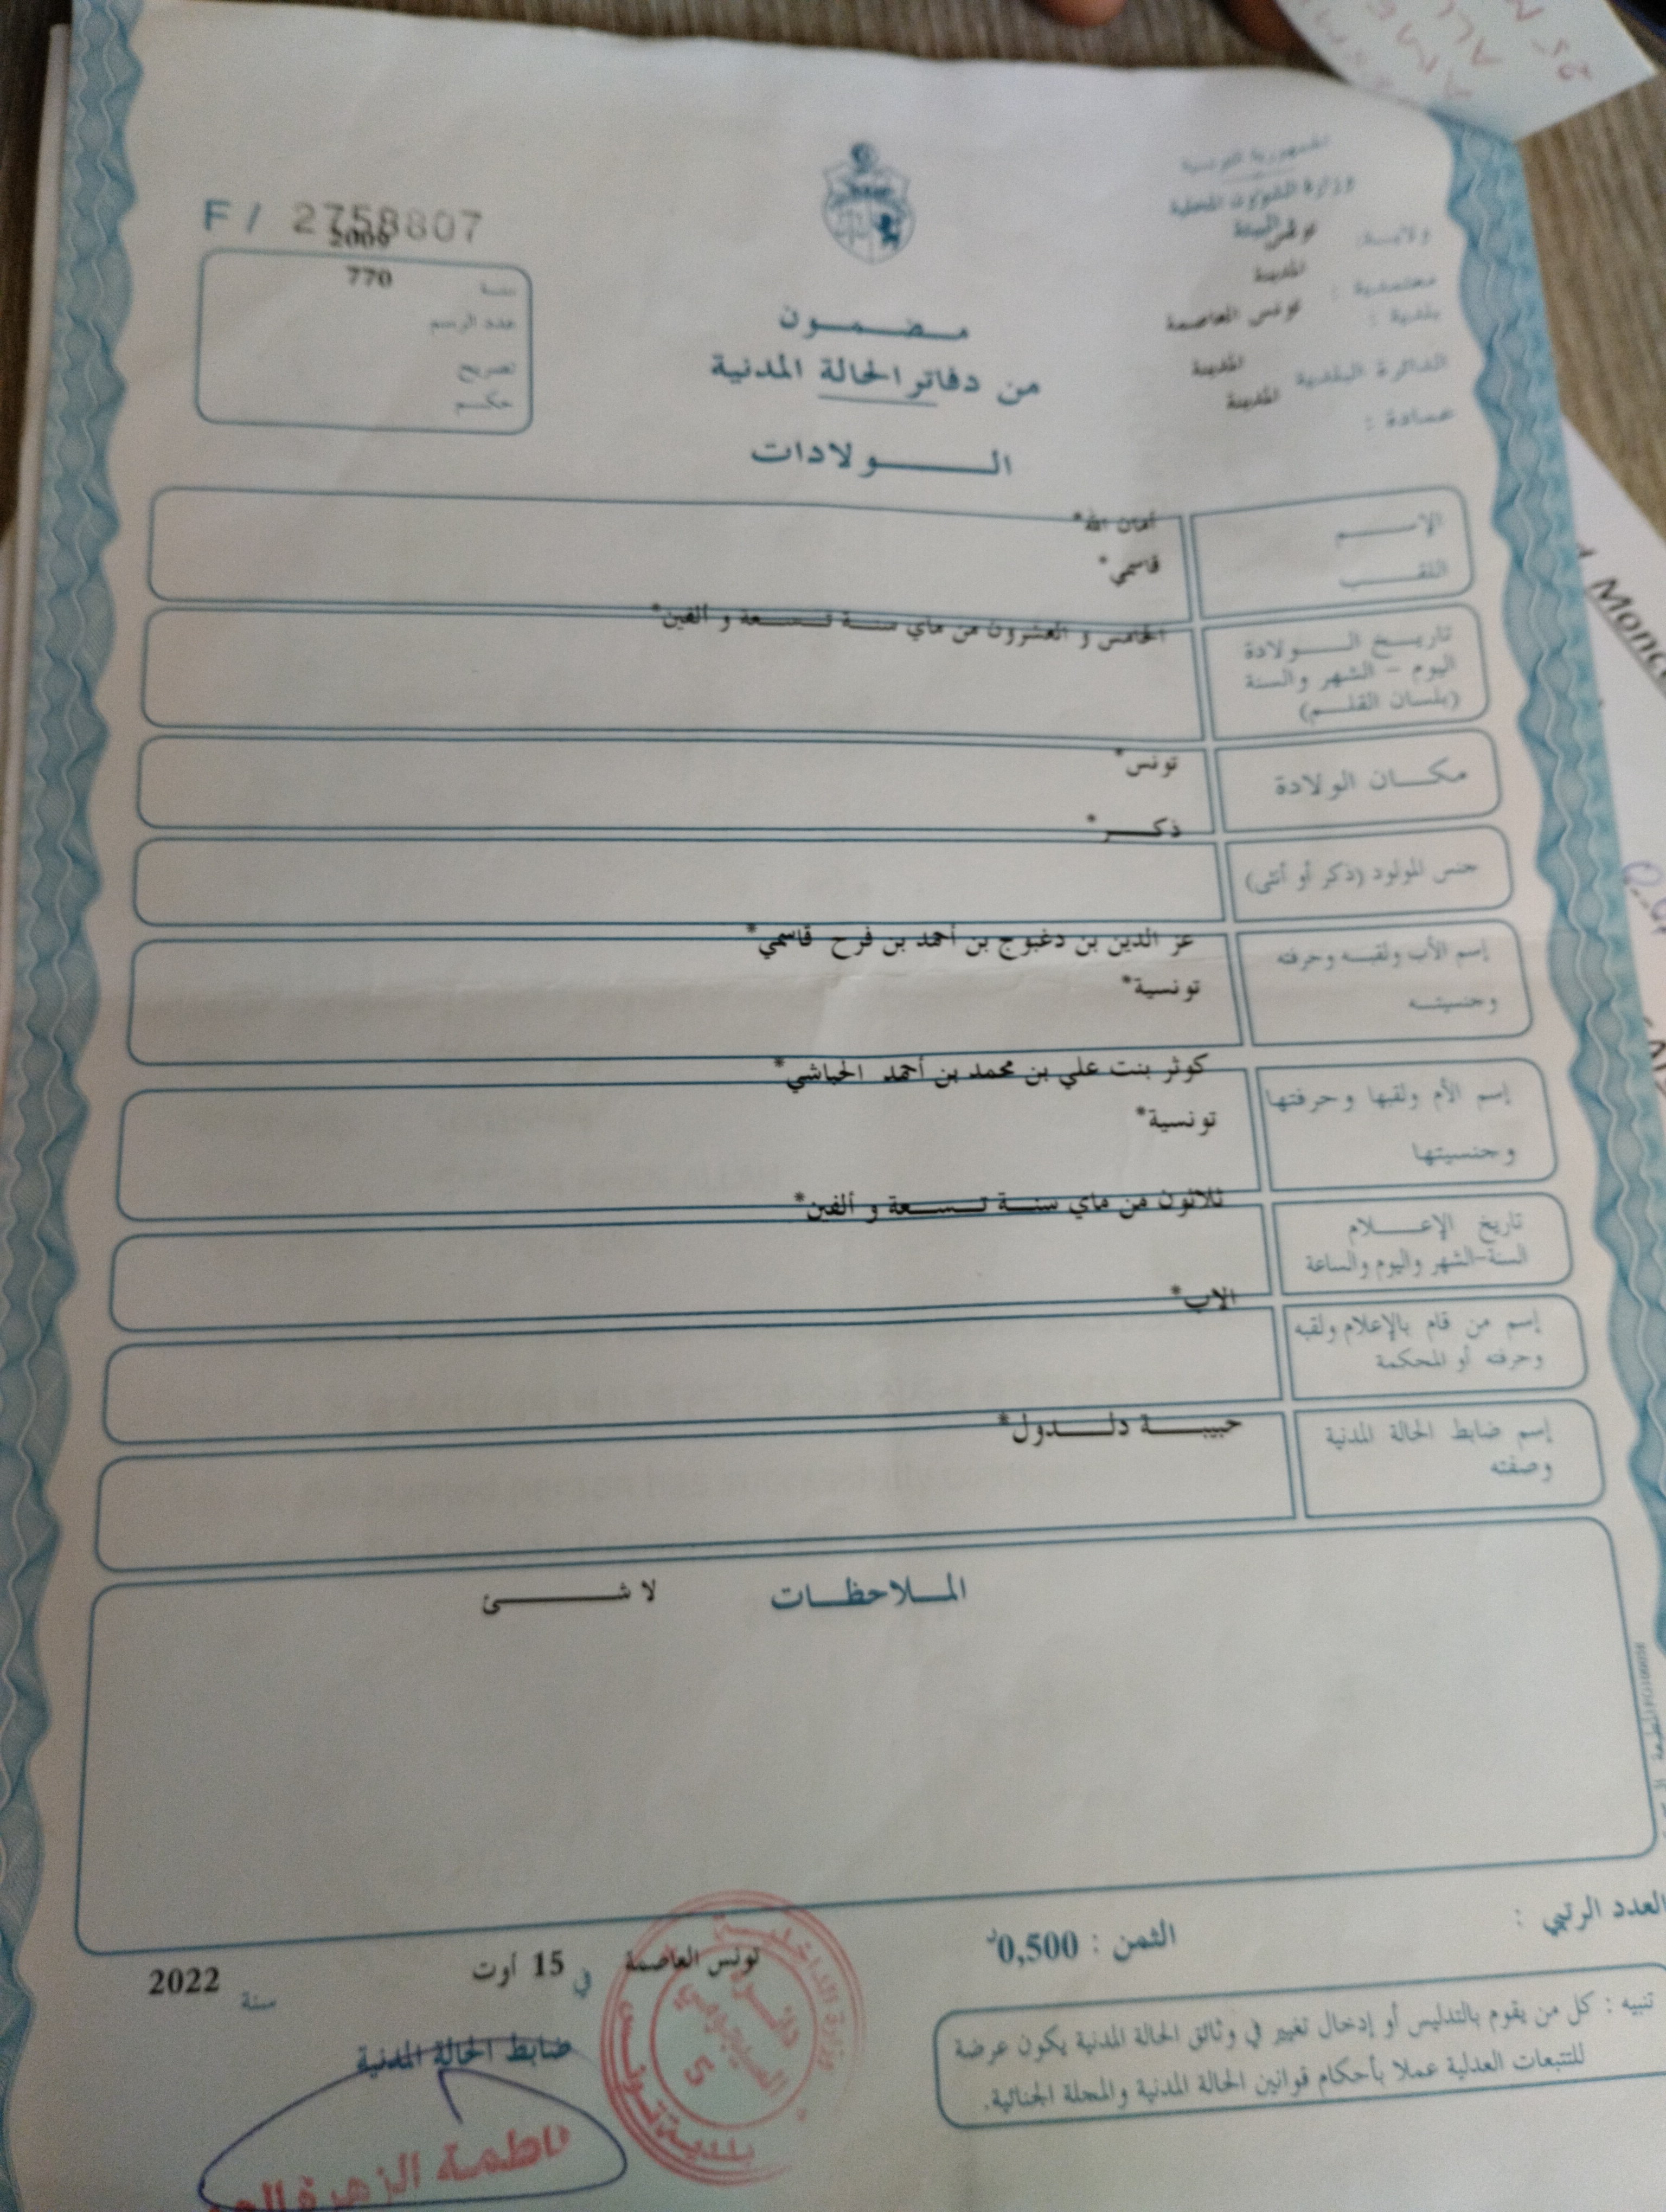 الجمهورية التونسية
وزارة الشؤون المحلية
ولايـة: تونس
معتمدية : المدينة
بلدية : تونس العاصمة
الدائرة البلدية المدينة
عمادة : المدينة
F / 2758807
2009
سنة 770
عدد الرسم
تصريح
حكـم
مـضـمـون
من دفاتر الحالة المدنية
الـولادات
الإسـم أمان الله*
اللقـب قاسمي*
تاريـخ الـولادة الخامس و العشرون من ماي سنـة تـسـعة و ألفين*
اليوم - الشهر والسنة
(بلسان القلـم)
مكـان الولادة تونس*
ذكـر*
جنس المولود (ذكر أو أنثى)
إسم الأب ولقبـه وحرفته عز الدين بن دغبوج بن أحمد بن فرح قاسمي*
وجنسيتـه تونسية*
إسم الأم ولقبها وحرفتها كوثر بنت علي بن محمد بن أحمد الحباشي*
وجنسيتها تونسية*
تاريخ الإعـلام ثلاثون من ماي سنـة تـسـعة و ألفين*
السنة-الشهر واليوم والساعة
الاب*
إسم من قام بالإعلام ولقبه
وحرفته أو المحكمة
إسم ضابط الحالة المدنية حبيبـة دلـدول*
وصفته
المـلاحظـات لا شـئ
العدد الرتبي :
الثمن : 0,500د
تونس العاصمة في 15 أوت سنة 2022
ضابط الحالة المدنية
تنبيه : كل من يقوم بالتدليس أو إدخال تغيير في وثائق الحالة المدنية يكون عرضة
للتتبعات العدلية عملا بأحكام قوانين الحالة المدنية والمجلة الجنائية.
وزارة الداخلية
دائرة
السيجومي
5
بلدية تونس
فاطمة الزهرة